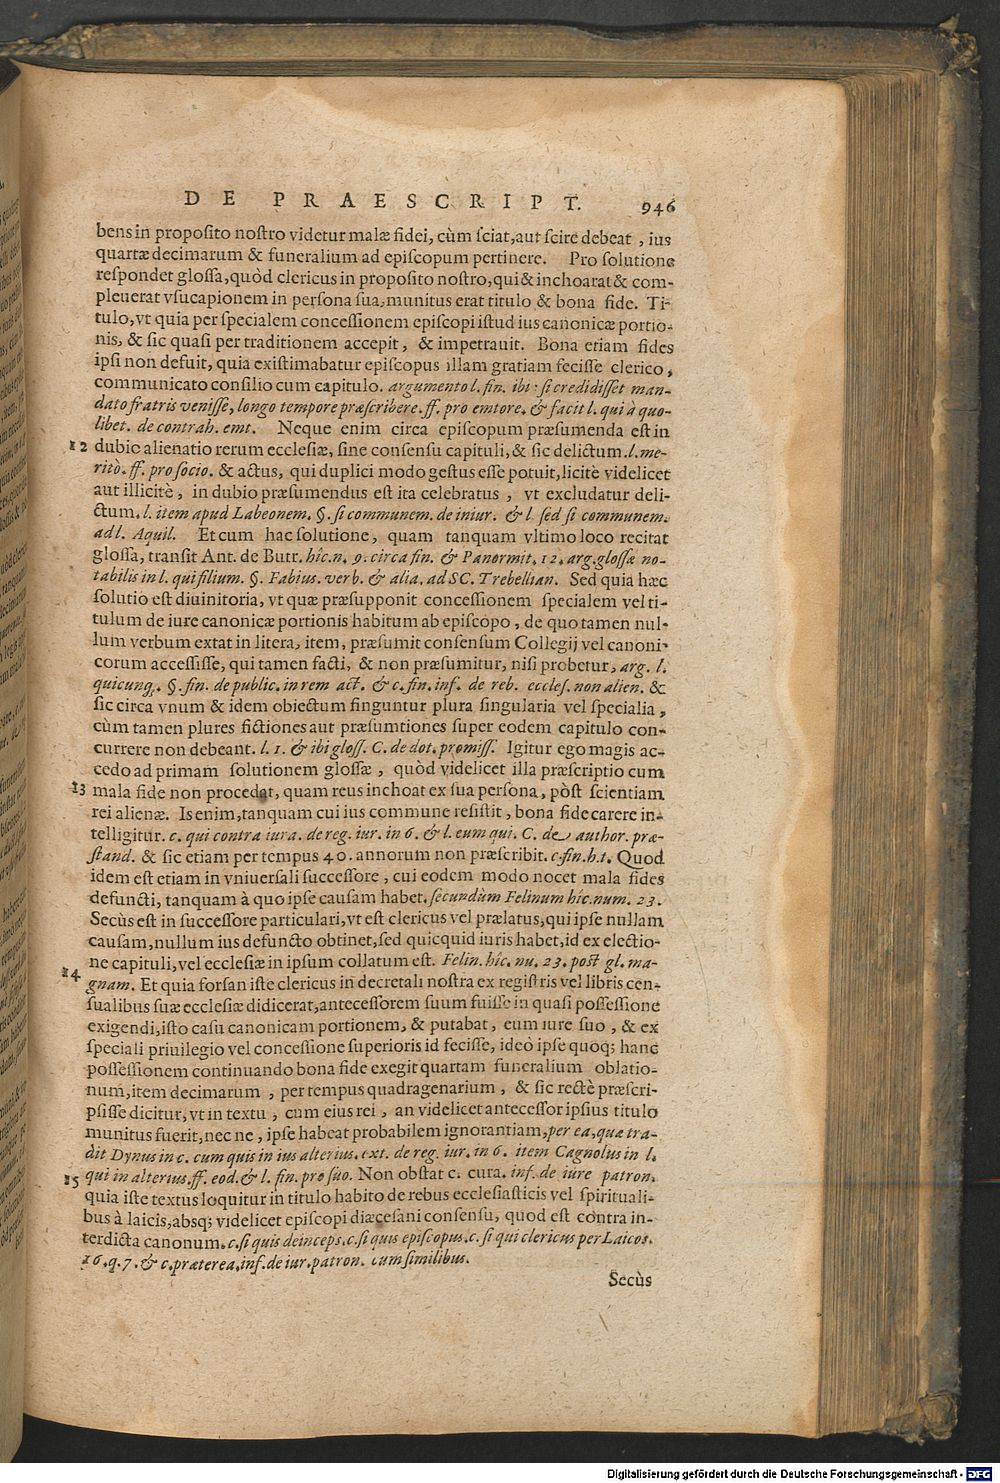 DE PRAESCRIPT. 946
bens in proposito nostro videtur malæ fidei, cùm sciat, aut scire debeat, ius
quartæ decimarum & funeralium ad episcopum pertinere. Pro solutione
respondet glossa, quòd clericus in proposito nostro, qui & inchoarat & com-
pleuerat vsucapionem in persona sua, munitus erat titulo & bona fide. Ti-
tulo, vt quia per specialem concessionem episcopi istud ius canonicæ portio-
nis, & sic quasi per traditionem accepit, & impetrauit. Bona etiam fides
ipsi non defuit, quia existimabatur episcopus illam gratiam fecisse clerico,
communicato consilio cum capitulo. argumento l. fin. ibi: si credidisset man-
dato fratris venisse, longo tempore præscribere. ff. pro emtore. & facit l. qui à quo-
libet. de contrah. emt. Neque enim circa episcopum præsumenda est in
12 dubio alienatio rerum ecclesiæ, sine consensu capituli, & sic delictum. l. me-
ritò. ff. pro socio. & actus, qui duplici modo gestus esse potuit, licitè videlicet
aut illicitè, in dubio præsumendus est ita celebratus, vt excludatur deli-
ctum. l. item apud Labeonem. §. si communem. de iniur. & l sed si communem.
ad l. Aquil. Et cum hac solutione, quam tanquam vltimo loco recitat
glossa, transit Ant. de Butr. hîc. n. 9. circa fin. & Panormit. 12. arg. glossæ no-
tabilis in l. qui filium. §. Fabius. verb. & alia. ad SC. Trebellian. Sed quia hæc
solutio est diuinitoria, vt quæ præsupponit concessionem specialem vel ti-
tulum de iure canonicæ portionis habitum ab episcopo, de quo tamen nul-
lum verbum extat in litera, item, præsumit consensum Collegij vel canoni-
corum accessisse, qui tamen facti, & non præsumitur, nisi probetur, arg. l.
quicunq;. §. fin. de public. in rem act. & c. fin. inf. de reb. eccles. non alien. &
sic circa vnum & idem obiectum finguntur plura singularia vel specialia,
cùm tamen plures fictiones aut præsumtiones super eodem capitulo con-
currere non debeant. l. 1. & ibi gloss. C. de dot. promiss. Igitur ego magis ac-
cedo ad primam solutionem glossæ, quòd videlicet illa præscriptio cum
13 mala fide non procedat, quam reus inchoat ex sua persona, pòst scientiam
rei alienæ. Is enim, tanquam cui ius commune resistit, bona fide carere in-
telligitur. c. qui contra iura. de reg. iur. in 6. & l. eum qui. C. de author. præ-
stand. & sic etiam per tempus 40. annorum non præscribit. c. fin. h. t. Quod
idem est etiam in vniuersali successore, cui eodem modo nocet mala fides
defuncti, tanquam à quo ipse causam habet. secundùm Felinum hîc. num. 23.
Secùs est in successore particulari, vt est clericus vel prælatus, qui ipse nullam
causam, nullum ius defuncto obtinet, sed quicquid iuris habet, id ex electio-
ne capituli, vel ecclesiæ in ipsum collatum est. Felin. hîc. nu. 23. post gl. ma-
14 gnam. Et quia forsan iste clericus in decretali nostra ex registris vel libris cen-
sualibus suæ ecclesiæ didicerat, antecessorem suum fuisse in quasi possessione
exigendi, isto casu canonicam portionem, & putabat, eum iure suo, & ex
speciali priuilegio vel concessione superioris id fecisse, ideò ipse quoq; hanc
possessionem continuando bona fide exegit quartam funeralium oblatio-
num, item decimarum, per tempus quadragenarium, & sic rectè præscri-
psisse dicitur, vt in textu, cum eius rei, an videlicet antecessor ipsius titulo
munitus fuerit, nec ne, ipse habeat probabilem ignorantiam, per ea, quæ tra-
dit Dynus in c. cum quis in ius alterius. ext. de reg. iur. in 6. item Cagnolus in l.
15 qui in alterius. ff. eod. & l. fin. pro suo. Non obstat c. cura. inf. de iure patron.
quia iste textus loquitur in titulo habito de rebus ecclesiasticis vel spirituali-
bus à laicis, absq; videlicet episcopi diæcesani consensu, quod est contra in-
terdicta canonum. c. si quis deinceps. c. si quis episcopus. c. si qui clericus per Laicos.
16. q. 7. & c. præterea. inf. de iur. patron. cum similibus.
Secùs
Digitalisierung gefördert durch die Deutsche Forschungsgemeinschaft - DFG